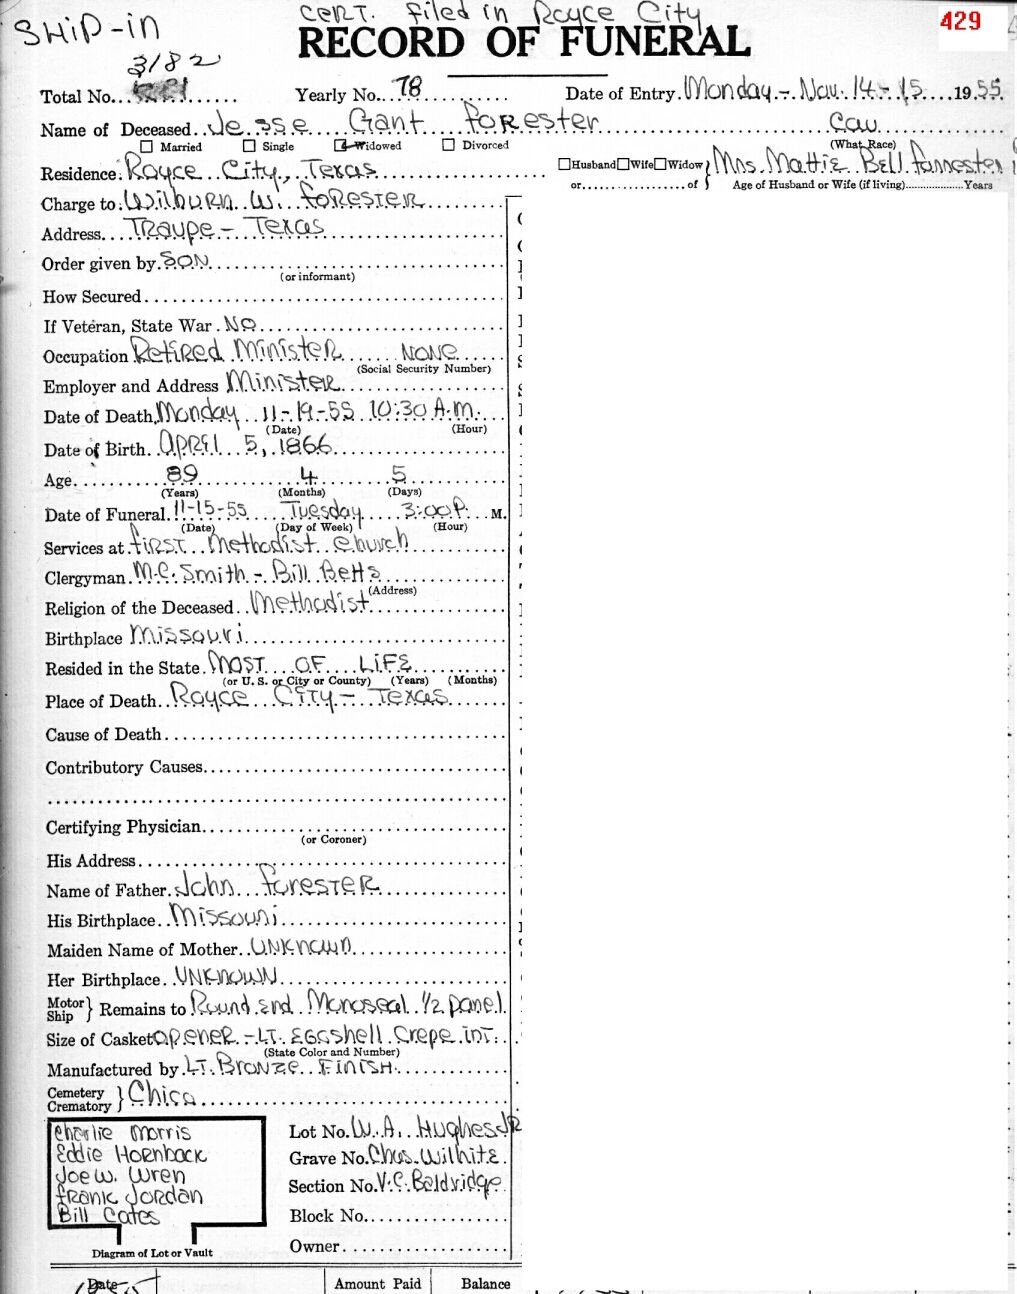 SHIP-IN
CERT. filed in Royce City
429
RECORD OF FUNERAL
3182
Total No. Yearly No. 78 Date of Entry. Monday - Nov. 14 - 15 1955
Name of Deceased Jesse Gant Forester Cau
Married Single Widowed Divorced (What Race)
Residence. Royce City, Texas Husband Wife Widow or of } Mrs. Mattie Bell Forrester
Age of Husband or Wife (if living) Years
Charge to. Wilburn W. Forester
Address Traupe - Texas
Order given by. SON
(or informant)
How Secured
If Veteran, State War. NO
Occupation Retired Minister NONE
(Social Security Number)
Employer and Address Minister
Date of Death. Monday 11-19-55 10:30 A.M.
(Date) (Hour)
Date of Birth. APRIL 5, 1866
Age 89 4 5
(Years) (Months) (Days)
Date of Funeral. 11-15-55 Tuesday 3:00 P. M.
(Date) (Day of Week) (Hour)
Services at. First Methodist Church
Clergyman. M.C. Smith - Bill Betts
(Address)
Religion of the Deceased. Methodist
Birthplace Missouri
Resided in the State. MOST OF LIFE
(or U. S. or City or County) (Years) (Months)
Place of Death. Royce City - Texas
Cause of Death
Contributory Causes
Certifying Physician
(or Coroner)
His Address
Name of Father. John Forester
His Birthplace. Missouri
Maiden Name of Mother. Unknown
Her Birthplace. UNKNOWN
Motor Ship } Remains to Round end Monoseal 1/2 panel
Size of Casket opener - LT. Eggshell Crepe int.
(State Color and Number)
Manufactured by LT. Bronze Finish
Cemetery Crematory } Chico
Charlie Morris
Eddie Hornback
Joe W. Wren
Frank Jordan
Bill Cates
Lot No. W. A. Hughes JR
Grave No. Chas. Wilhite
Section No. V.C. Baldridge
Block No.
Owner
Diagram of Lot or Vault
Date Amount Paid Balance